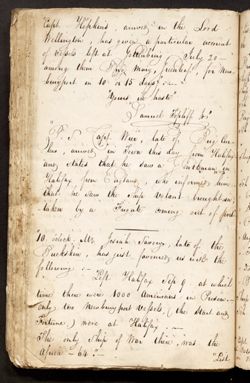 Capt. Hopkins, arrived in the Lord
Wellington, has given a particular account
of Vessels left at Gottenburg July 20 —
among them Ship Mary, for New-
buryport in 10 or 15 days —
"Yours in haste"
Samuel Topliff Jr."
"P.S. Capt. late of Brig
arrived in Town this day from Halifax
and states that he saw a Gentleman in
Halifax from who informed him
that he saw the Ship Volant brought in
taken by a Frigate coming out of port
"10 o'clock. Mr. Josiah late of the
Buckskin, has just favored us with the
following —
Left Halifax Sep 9, at which
time there were 1000 Americans in Prison —
only two Newburyport Vessels, (the Mars and
Fortune) were at Halifax. —
The only Ship of War there, was the
Africa — 64."